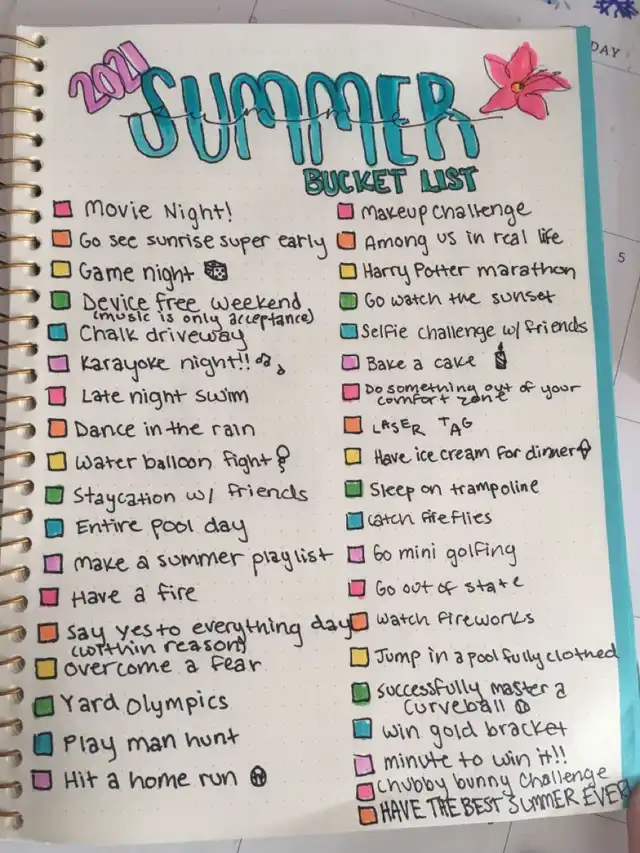 2021
SUMMER
summer
BUCKET LIST
Movie Night!
Go see sunrise super early
Game night
Device free weekend
(music is only acceptance)
Chalk driveway
Karayoke night!!
Late night swim
Dance in the rain
Water balloon fight
Staycation w/ friends
Entire pool day
make a summer playlist
Have a fire
Say yes to everything day
(within reason)
overcome a fear
Yard Olympics
Play man hunt
Hit a home run
makeup challenge
Among us in real life
Harry Potter marathon
Go watch the sunset
Selfie challenge w/ friends
Bake a cake
Do something out of your
comfort zone
LASER TAG
Have ice cream for dinner
Sleep on trampoline
catch fireflies
Go mini golfing
Go out of state
watch fireworks
Jump in a pool fully clothed
successfully master a
curveball
win gold bracket
minute to win it!!
chubby bunny challenge
HAVE THE BEST SUMMER EVER
DAY
5